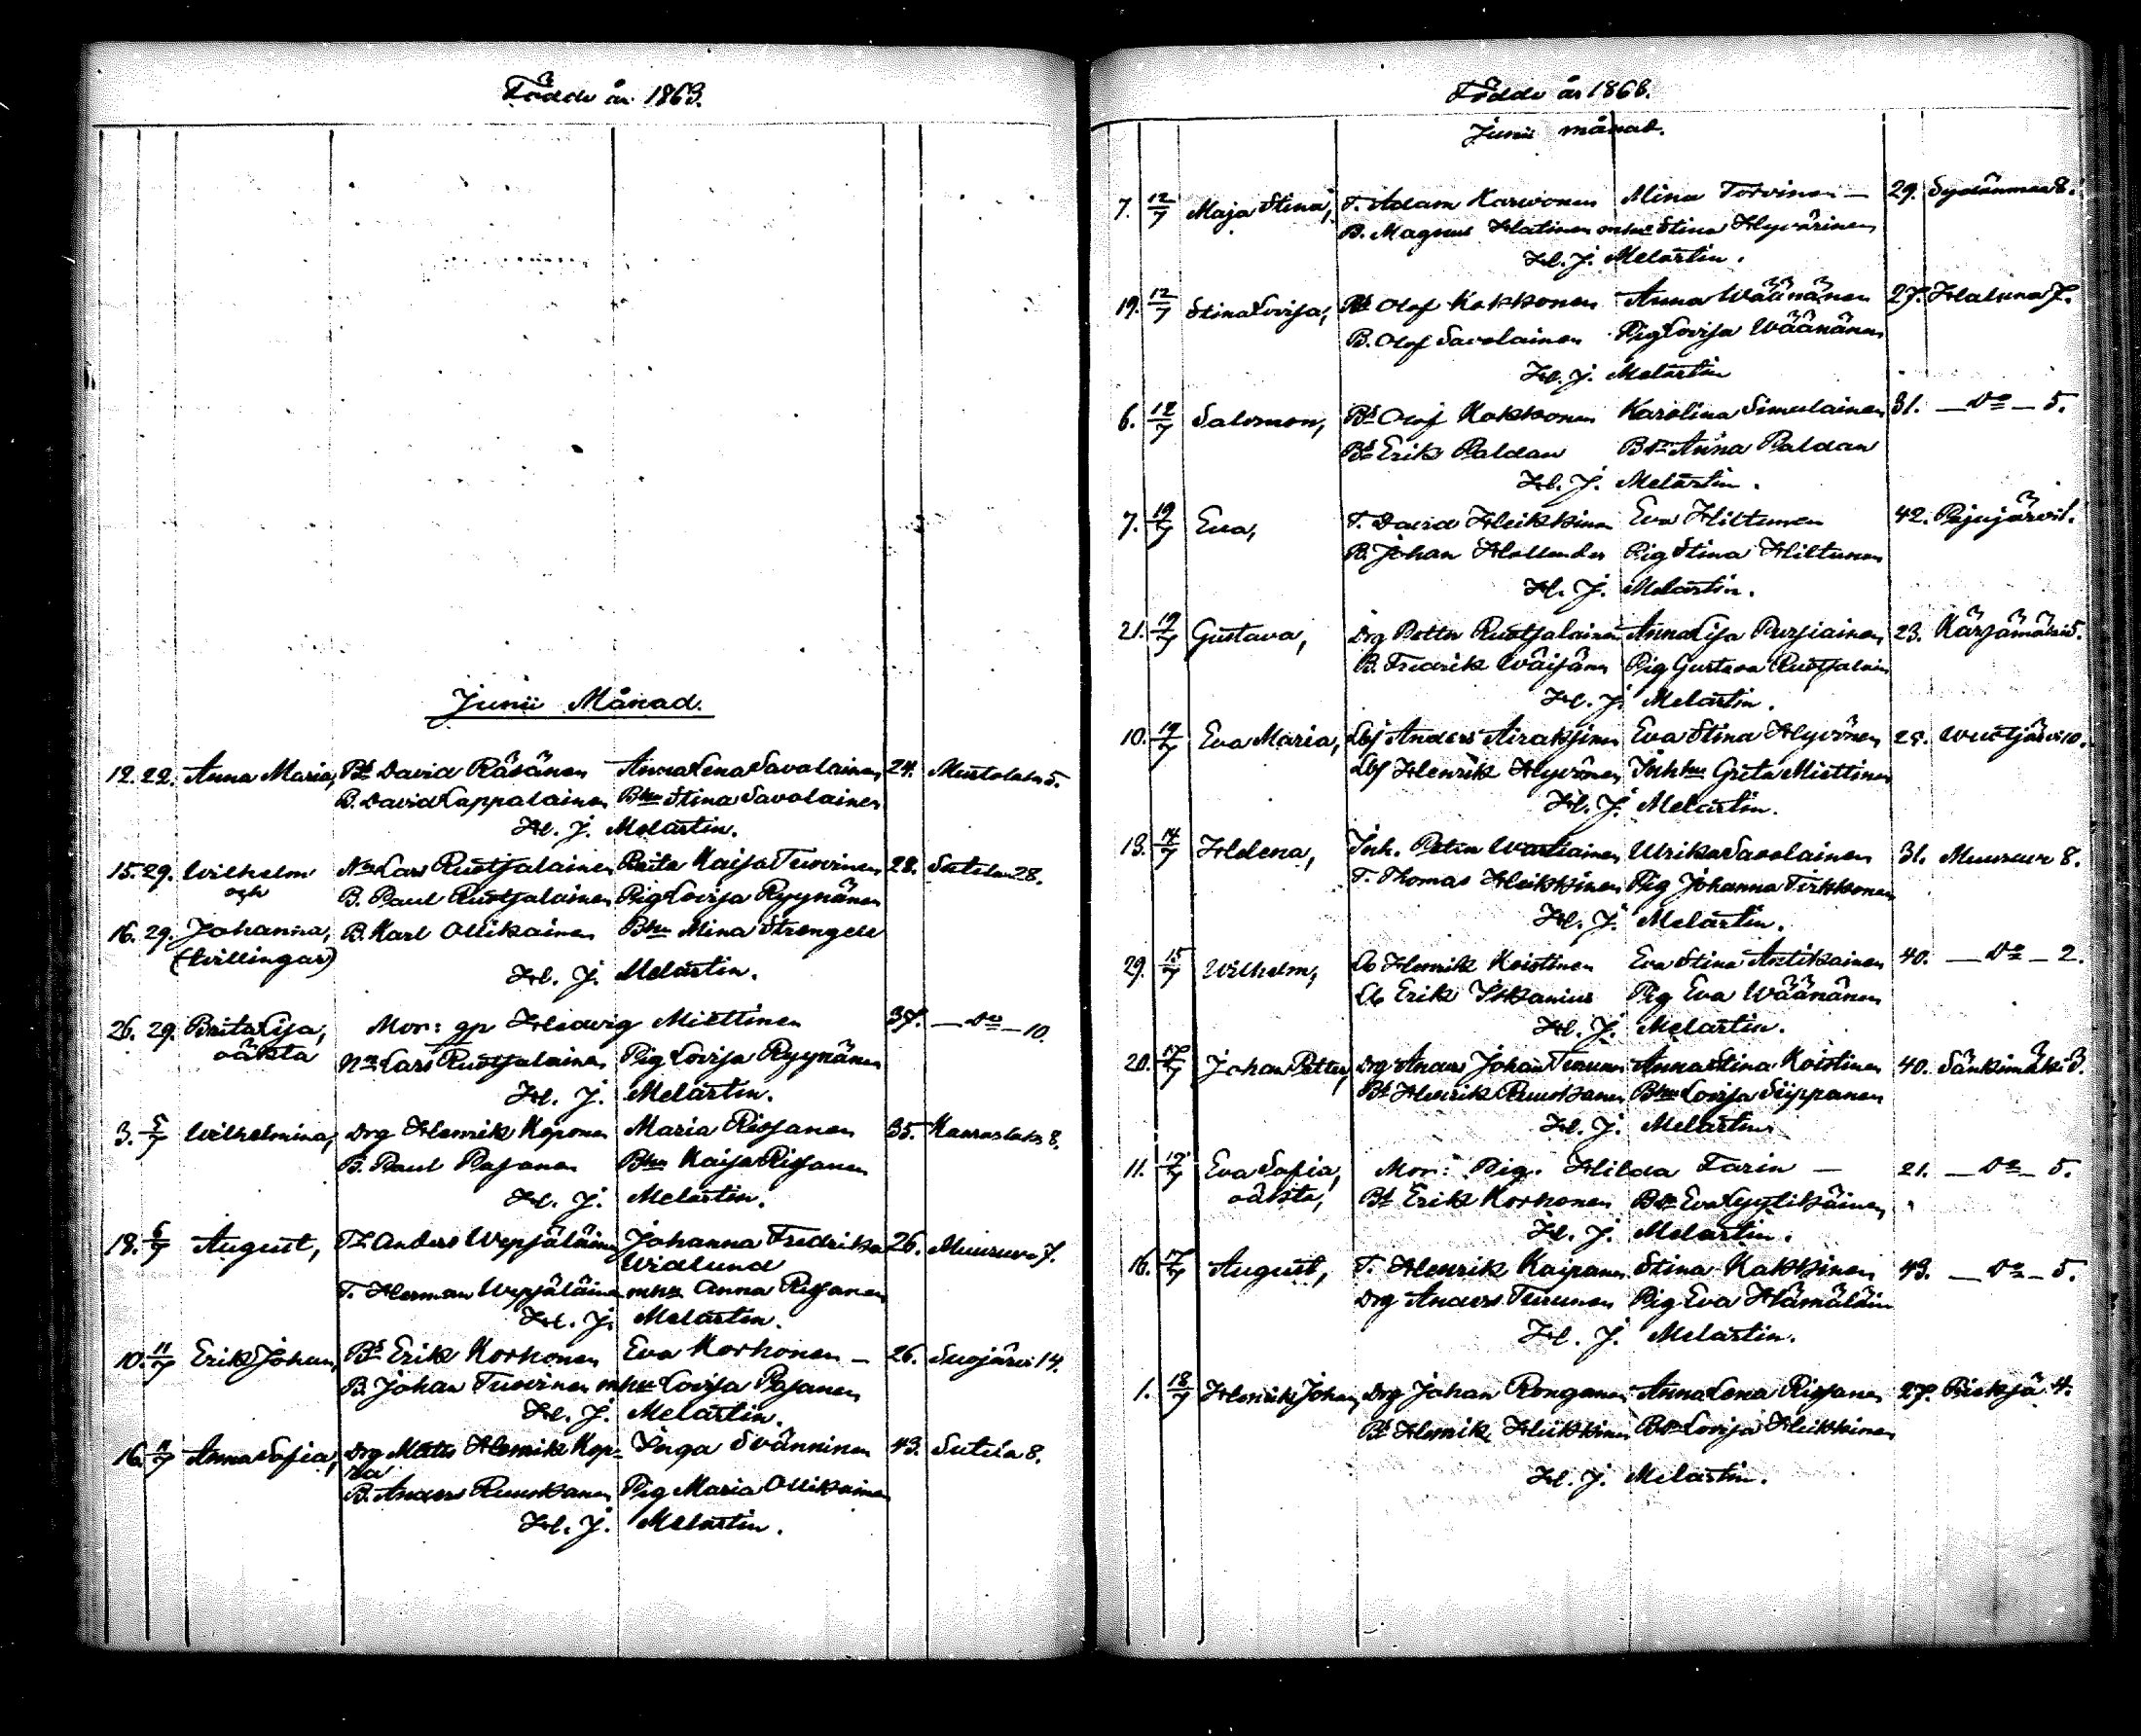 Födde år 1863.
Junii Månad.
12. 22. Anna Maria, Bd David Räsänen Anna Lena Savolainen 24. Mustolaks 5.
B. David Lappalainen Bhu Stina Savolainen
Hl. J. Melartin.
15. 29. Wilhelm Nm Lars Ruotsalainen Brita Kaija Turvinen 28. Sutela 28.
och B. Paul Ruotsalainen Pig Lovisa Ryynänen
16. 29. Johanna, B. Karl Ollikainen Bhu Mina Strengell
(tvillingar)
Hl. J. Melartin.
26. 29. Brita Lisa, Mor: gp Hedwig Miettinen 37. — Do — 10.
oäkta Nm Lars Ruotsalainen Pig Lovisa Ryynänen
Hl. J. Melartin.
3. 5/7 Wilhelmina, Drg Henrik Koponen Maria Rissanen 35. Kauraslaks 8.
B. Paul Pasanen Bhu Kaisa Rissanen
Hl. J. Melartin.
18. 6/7 August, T. Anders Wepsäläinen Johanna Fredrika 26. Muuruve 7.
Widlund
T. Herman Wepsäläinen mhu Anna Rissanen
Hl. J. Melartin.
10. 11/7 Erik Johan, Bd Erik Korhonen Eva Korhonen — 26. Suojärvi 14.
B. Johan Turvinen mhu Lovisa Pasanen
Hl. J. Melartin.
16. 11/7 Anna Sofia, Drg Matts Henrik Kop- Inga Svänninen 43. Sutela 8.
B. Anders Ruuskanen Pig Maria Ollikainen
Hl. J. Melartin.
Födde år 1868.
Junii månad.
7. 12/7 Maja Stina, T. Adam Karvonen Mina Torvinen — 29. Sydänmaa 8.
B. Magnus Hatinen mhu Stina Hyvärinen
Hl. J. Melartin.
19. 12/7 Stina Lovisa, Bd Olof Kokkonen Anna Wäänänen 27. Haluna 7.
B. Olof Savolainen Pig Lovisa Wäänänen
Hl. J. Melartin
6. 12/7 Salomon, Bd Olof Kokkonen Karolina Simulainen 31. — Do — 5.
Bd Erik Paldan Bhu Anna Paldan
Hl. J. Melartin.
7. 19/7 Eva, T. David Heikkinen Eva Hiltunen 42. Pajujärvi 1.
B. Johan Hollender Pig Stina Hiltunen
Hl. J. Melartin.
21. 19/7 Gustava, Drg Petter Ruotsalainen Anna Lisa Pursiainen 23. Kärsämäki 5.
B. Fredrik Wäisänen Pig Gustava Ruotsalain
Hl. J. Melartin.
10. 19/7 Eva Maria, Lbj Anders Airaksinen Eva Stina Hyvönen 25. Wuotjärvi 10.
Lbj Henrik Hyvönen Inhhu Greta Miettinen
Hl. J. Melartin.
13. 14/7 Helena, Inh. Petter Wartiainen Ulrika Savolainen 31. Muuruve 8.
T. Thomas Heikkinen Pig Johanna Tirkkonen
Hl. J. Melartin.
29. 15/7 Wilhelm, Henrik Koistinen Eva Stina Antikainen 40. — Do — 2.
Erik Pig Eva Wäänänen
Hl. J. Melartin.
20. 17/7 Johan Petter, Drg Anders Johan Teerunen Anna Stina Koistinen 40. Sänkimäki 3.
Bd Henrik Ruuskanen Bhu Lovisa Siippanen
Hl. J. Melartin
11. 12/7 Eva Sofia, Mor: Pig. Hilda Tarin — 21. — Do — 5.
oäkta, Bd Erik Korhonen Bhu Eva Lyytikäinen
Hl. J. Melartin.
16. 17/7 August, T. Henrik Kaipanen Stina Kakkinen 43. — Do — 5.
Drg Anders Teerunen Pig Eva Hämäläin
Hl. J. Melartin.
1. 18/7 Henrik Johan, Drg Johan Rongonen Anna Lena Rissanen 27. Pieksä 4.
Bd Henrik Heikkinen Bhu Lovisa Heikkinen
Hl. J. Melartin.